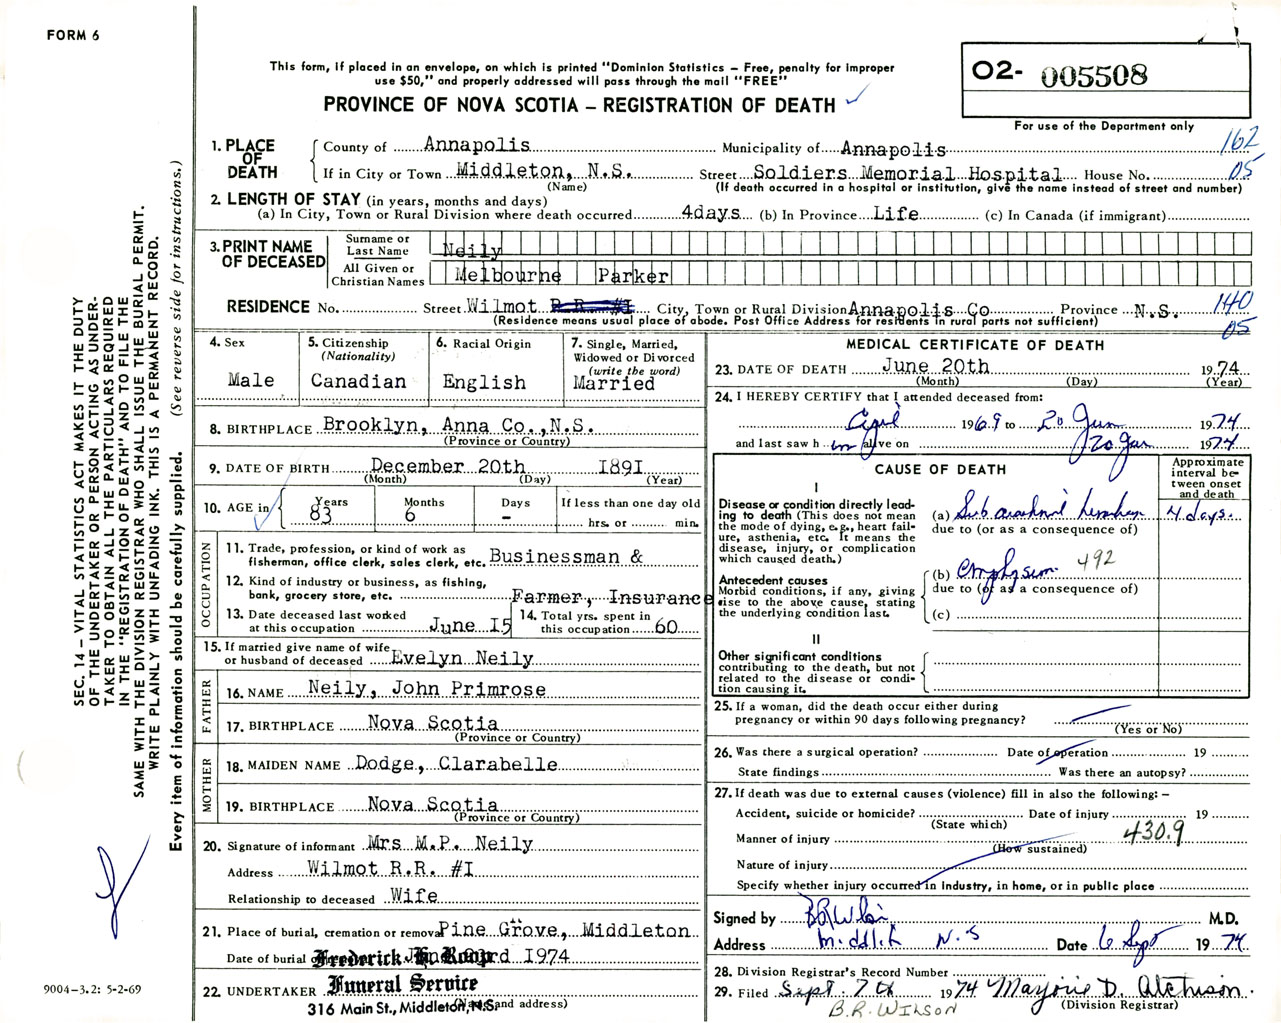 FORM 6
This form, if placed in an envelope, on which is printed "Dominion Statistics – Free, penalty for improper
use $50," and properly addressed will pass through the mail "FREE"
PROVINCE OF NOVA SCOTIA – REGISTRATION OF DEATH
O2- 005508
For use of the Department only
162
05
1. PLACE OF DEATH
County of Annapolis Municipality of Annapolis
If in City or Town Middleton, N.S. Street Soldiers Memorial Hospital House No.
(Name) (If death occurred in a hospital or institution, give the name instead of street and number)
2. LENGTH OF STAY (in years, months and days)
(a) In City, Town or Rural Division where death occurred 4days (b) In Province Life (c) In Canada (if immigrant)
3. PRINT NAME OF DECEASED
Surname or Last Name Neily
All Given or Christian Names Melbourne Parker
RESIDENCE No. Street Wilmot R.R. #I City, Town or Rural Division Annapolis Co Province N.S.
(Residence means usual place of abode. Post Office Address for residents in rural parts not sufficient)
140
05
4. Sex
Male
5. Citizenship
(Nationality)
Canadian
6. Racial Origin
English
7. Single, Married,
Widowed or Divorced
(write the word)
Married
8. BIRTHPLACE Brooklyn, Anna Co.,N.S.
(Province or Country)
9. DATE OF BIRTH December 20th I89I
(Month) (Day) (Year)
10. AGE in
Years 83
Months 6
Days -
If less than one day old
hrs. or min.
OCCUPATION
11. Trade, profession, or kind of work as
fisherman, office clerk, sales clerk, etc. Businessman &
12. Kind of industry or business, as fishing,
bank, grocery store, etc. Farmer, Insurance
13. Date deceased last worked
at this occupation June I5
14. Total yrs. spent in
this occupation 60
15. If married give name of wife
or husband of deceased Evelyn Neily
FATHER
16. NAME Neily, John Primrose
17. BIRTHPLACE Nova Scotia
(Province or Country)
MOTHER
18. MAIDEN NAME Dodge, Clarabelle
19. BIRTHPLACE Nova Scotia
(Province or Country)
20. Signature of informant Mrs M.P. Neily
Address Wilmot R.R. #I
Relationship to deceased Wife
21. Place of burial, cremation or removal Pine Grove, Middleton
Date of burial or 23rd I974
Frederick H. Roop
Funeral Service
22. UNDERTAKER
316 Main St., Middleton, N.S.
(Name and address)
MEDICAL CERTIFICATE OF DEATH
23. DATE OF DEATH June 20th 1974
(Month) (Day) (Year)
24. I HEREBY CERTIFY that I attended deceased from:
April 1969 to 20 Jun 1974
and last saw h im alive on 20 Jun 1974
CAUSE OF DEATH
Approximate
interval be-
tween onset
and death
I
Disease or condition directly lead-
ing to death (This does not mean
the mode of dying, e.g., heart fail-
ure, asthenia, etc. It means the
disease, injury, or complication
which caused death.)
(a) Sub arachnoid 4 days.
due to (or as a consequence of)
Antecedent causes
Morbid conditions, if any, giving
rise to the above cause, stating
the underlying condition last.
(b) Emphysem 492
due to (or as a consequence of)
(c)
II
Other significant conditions
contributing to the death, but not
related to the disease or condi-
tion causing it.
25. If a woman, did the death occur either during
pregnancy or within 90 days following pregnancy?
(Yes or No)
26. Was there a surgical operation? Date of operation 19
State findings Was there an autopsy?
27. If death was due to external causes (violence) fill in also the following: –
Accident, suicide or homicide? Date of injury 19
(State which)
Manner of injury 430.9
(How sustained)
Nature of injury
Specify whether injury occurred in industry, in home, or in public place
Signed by B R Wilson M.D.
Address Middleton N.S Date 6 Sept 1974
28. Division Registrar's Record Number
29. Filed Sept. 7th 1974 Marjorie D. Atchison.
(Division Registrar)
B.R. WILSON
SEC. 14 – VITAL STATISTICS ACT MAKES IT THE DUTY
OF THE UNDERTAKER OR PERSON ACTING AS UNDER-
TAKER TO OBTAIN ALL THE PARTICULARS REQUIRED
IN THE "REGISTRATION OF DEATH" AND TO FILE THE
SAME WITH THE DIVISION REGISTRAR WHO SHALL ISSUE THE BURIAL PERMIT.
WRITE PLAINLY WITH UNFADING INK. THIS IS A PERMANENT RECORD.
Every item of information should be carefully supplied. (See reverse side for instructions.)
9004-3.2: 5-2-69